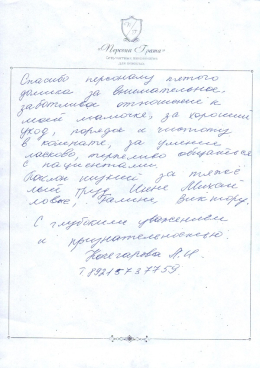 «Первая Грата»
Спасибо персоналу пятого
домика за внимательное,
заботливое отношение к
моей мамочке, за хороший
уход, порядок и чистоту
в комнате, за умение
ласково, терпеливо общаться
с пациентами.
низкий за тяжё-
лый труд Инне Михай-
ловне, Галине Виктору.
С глубоким уважением
и признательностью.
А.И.
Т 89215737759